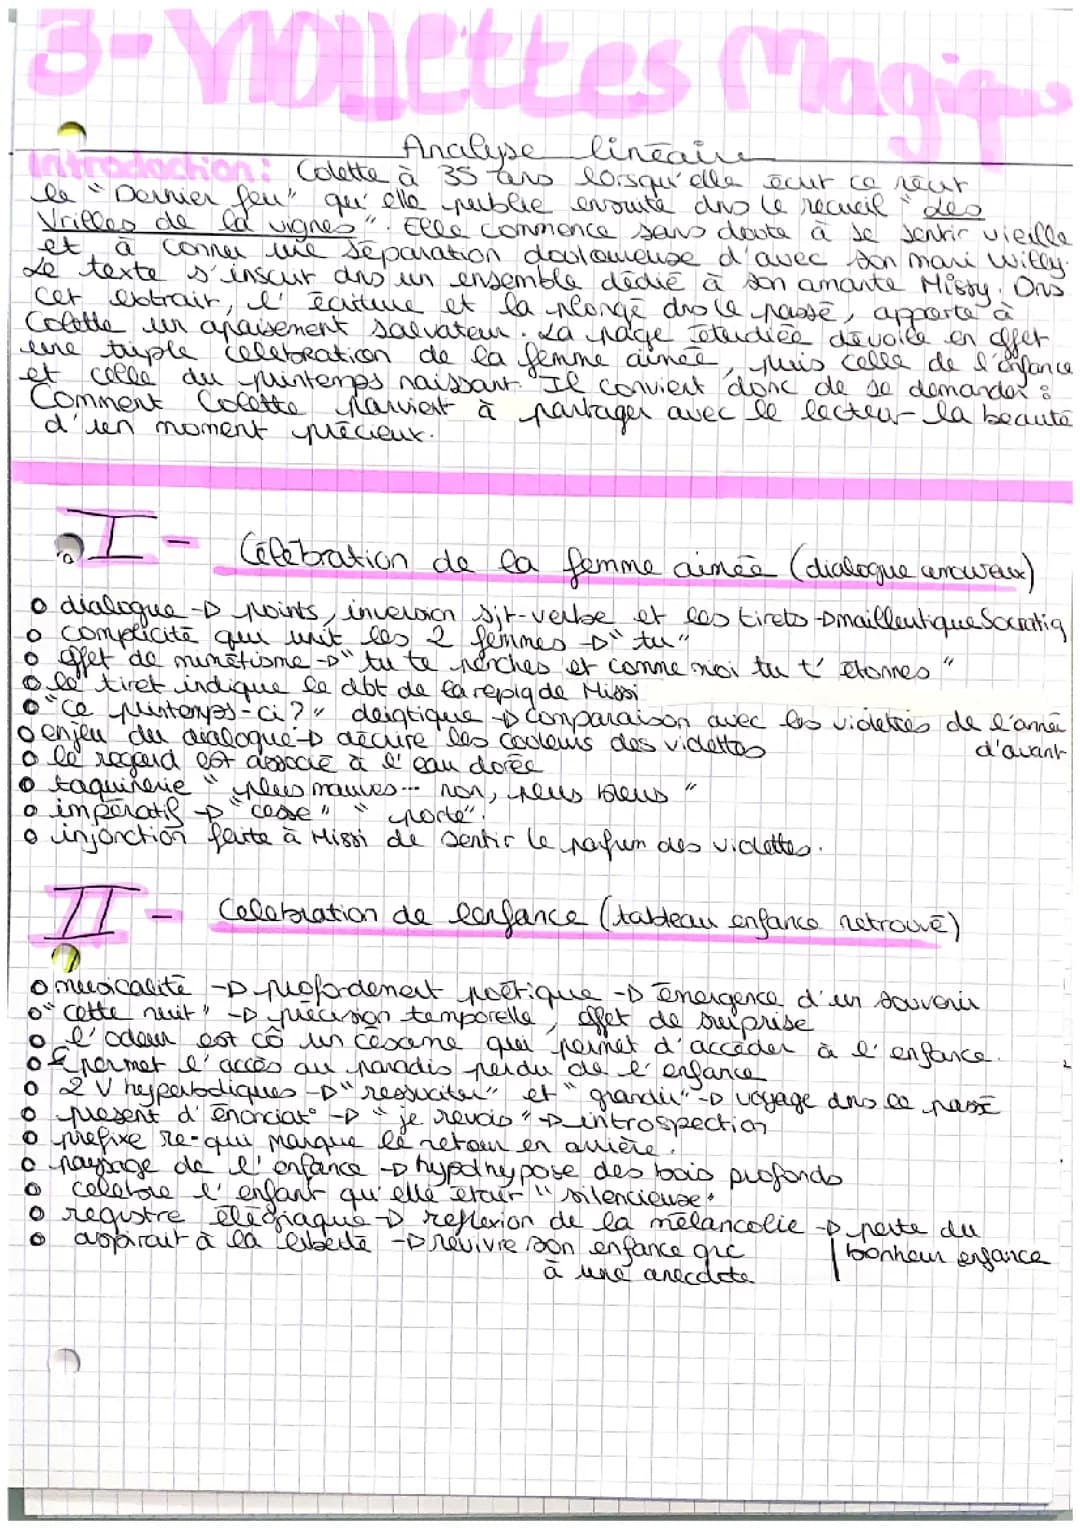 3- Violettes Magiq
Analyse linéaire
Introdoction: Colette a 35 ans lorsqu'elle écrit ce récit
le "Dernier feu" qu'elle publie ensuite dns le recueil "Les
Vrilles de la vignes". Elle commence sans doute à se sentir vieille
et a connu une séparation douloureuse d'avec son mari Willy.
Le texte s'inscrit dns un ensemble dédié à son amante Missy. Dns
cet extrait, l'écriture et la plongé dns le passé, apporte à
Colette un apaisement salvateur. La page étudiée dévoile en effet
une triple celebration de la femme aimée, puis celle de l'enfance
et celle du printemps naissant. Il convient donc de se demander :
Comment Colette parvient à partager avec le lecteur la beauté
d'un moment précieux.
I - Célébration de la femme aimée (dialogue amoureux)
o dialogue -> points, inversion sjt-verbe et les tirets -> mailleutique Socratiq
o complicité qui unit les 2 femmes -> "tu"
o effet de mimétisme -> "tu te penches et comme moi tu t'étonnes"
o le tiret indique le dbt de la repiq de Missi
o "ce printemps-ci?" deigtique -> comparaison avec les violettes de l'année d'avant
o enjeu du dialogue -> décrire les couleurs des violettes
o le regard est associé à l'eau dorée
o taquinerie "plus mauves... non, plus bleus"
o impératif -> "cesse" "porte".
o injonction faite à Missi de sentir le parfum des violettes.
II - Celebration de lenfance (tableau enfance retrouvé)
o musicalité -> profondement poétique -> émergence d'un souvenir
o "cette nuit" -> précision temporelle, effet de surprise
o l'odeur est cô un césame qui permet d'accéder à l'enfance.
o permet l'accès au paradis perdu de l'enfance
o 2 V hyperboliques -> "ressuciter" et "grandir" -> voyage dns le passé
o présent d'énonciat° -> "je revois" -> introspection
o préfixe re- qui marque le retour en arrière.
o paysage de l'enfance -> hypothypose des bois profonds
o celebre l'enfant qu'elle était "silencieuse"
o registre élégiaque -> reflexion de la mélancolie -> perte du bonheur enfance
o aspirait à la liberté -> revivre son enfance grc
à une anecdote